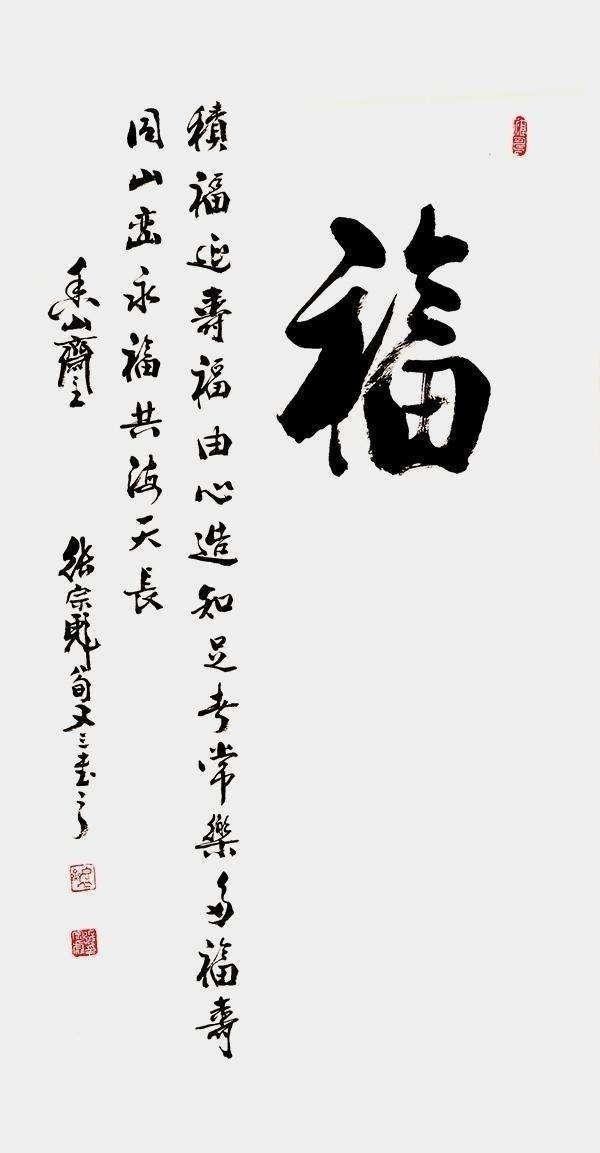 福
積福延壽福由心造知足者常樂多福壽
同山巒永福共海天長
山齋主
張宗彪旬又三書